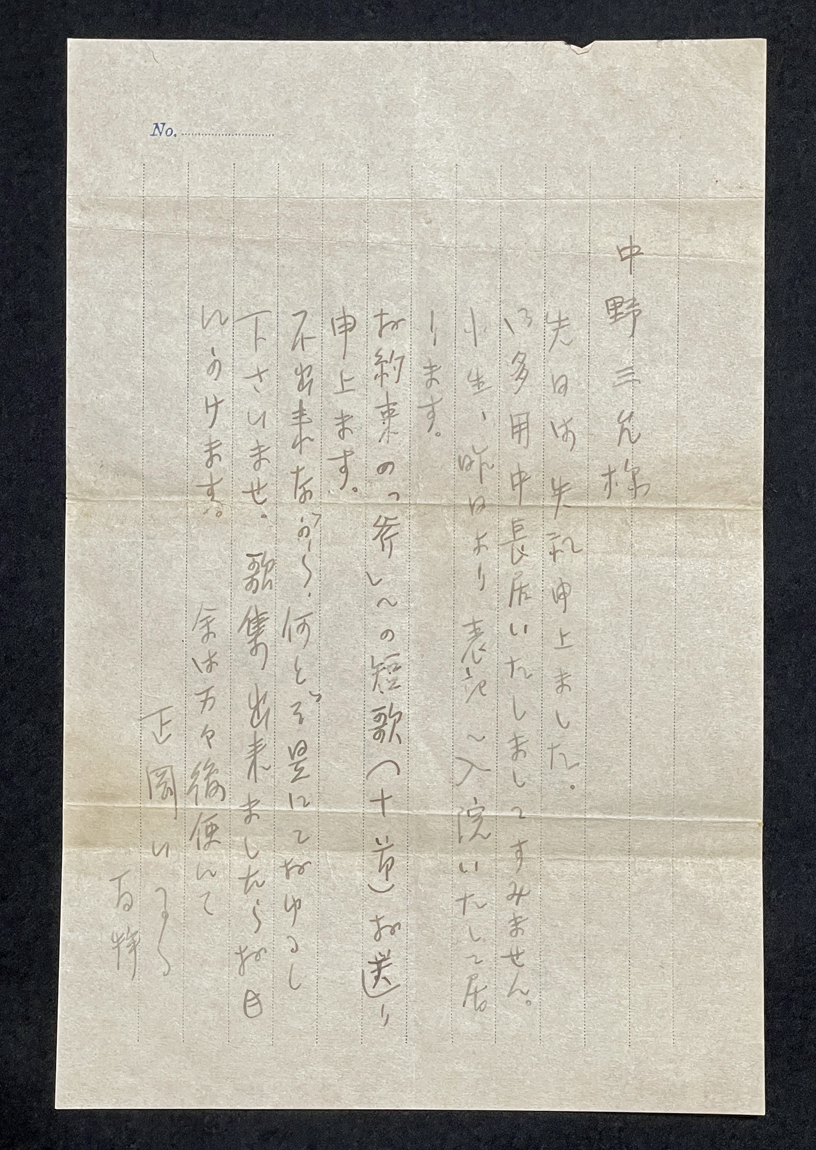 No.
中野三允様
先日は失礼申上ました。
御多用中長居いたしましてすみません。
小生、昨日より表記へ入院いたして居
ります。
お約束の 短歌(十首)お送り
申上ます。
不出来ながら、何とぞ にておゆるし
下さいませ。歌集出来ましたらお目
にかけます。
余は万々後便にて
正岡いつる
百拝